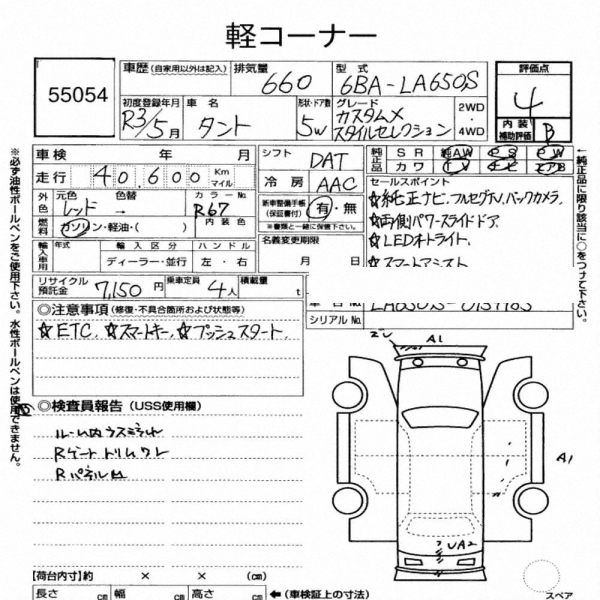 軽コーナー
55054
車歴(自家用以外は記入) 排気量 660 型式 6BA-LA650S
評価点 4
内装補助評価 B
初度登録年月 R3/5月 車名 タント 形状・ドア数 5W グレード カスタムX スタイルセレクション 2WD・4WD
車検 年 月
走行 40,600 Km マイル
外色 元色 レッド → 色替 カラーNo R67
内装色
燃料 ガソリン・軽油・( )
輸入車用 年式 輸入区分 ハンドル
ディーラー・並行 左・右
シフト DAT
冷房 AAC
新車整備手帳(保証書付) 有・無
※書類と一緒に保管下さい。
名義変更期限
月 日
純正品 SR AW PS PW
カワ TV ナビ エアB
セールスポイント
☆純正ナビ、フルセグTV、バックカメラ
☆両側パワースライドドア、
☆LEDオートライト、
☆スマートアシスト
リサイクル預託金 7,150円 乗車定員 4人 積載量 t
シリアルNo.
◎注意事項(修復・不具合箇所および状態等)
☆ETC、☆スマートキー、☆プッシュスタート、
◎検査員報告(USS使用欄)
Rゲートトリム
Rパネル凹
A1
A1
UA2
【荷台内寸】約 × × (cm)
長さ cm 幅 cm 高さ cm ←(車検証上の寸法)
スペア
※必ず油性ボールペンをご使用下さい。水性ボールペンは使用できません。
↑純正品に限り該当に○をつけて下さい。